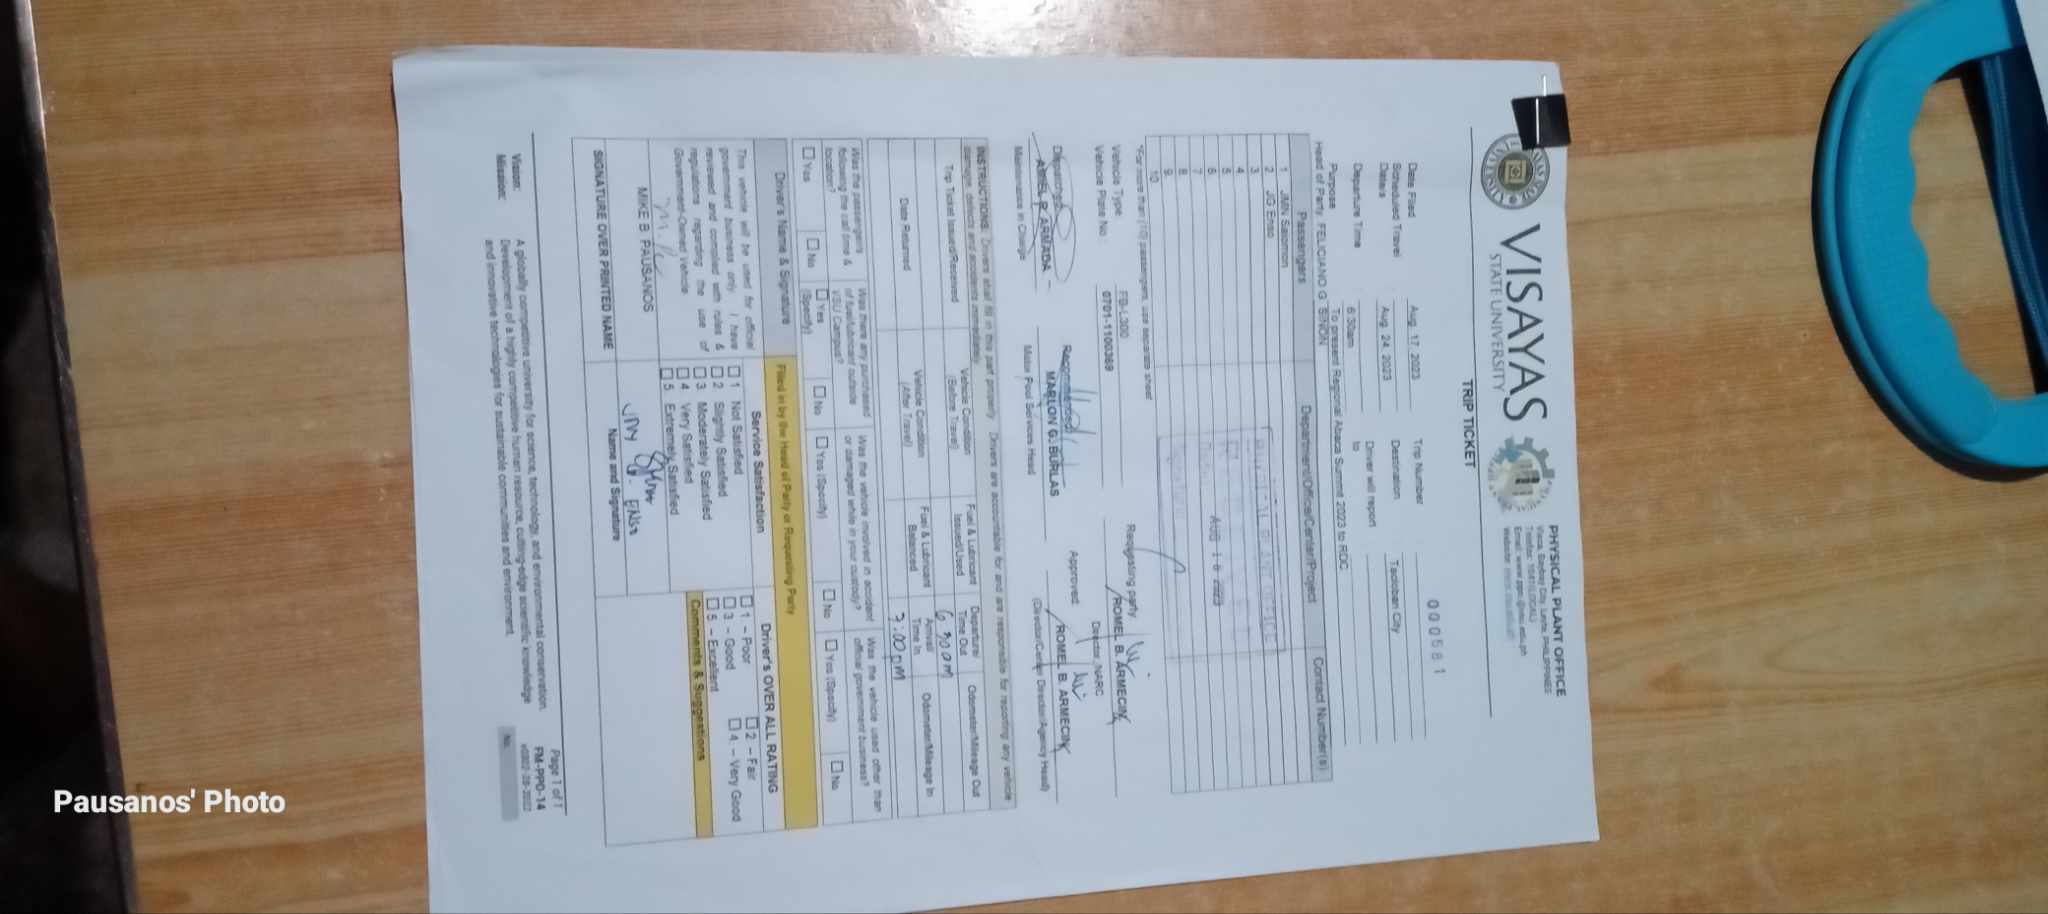 VISAYAS
STATE UNIVERSITY
PHYSICAL PLANT OFFICE
Visca, Baybay City, Leyte, PHILIPPINES
Email: www.ppo@vsu.edu.ph
TRIP TICKET
000581
Date Filed Aug. 17, 2023 Trip Number
Scheduled Travel Dates Aug. 24, 2023 Destination Tacloban City
Departure Time 6:30am Driver will report to
Purpose To present Regional Abaca Summit 2023 to RDC
Head of Party FELICIANO G. SINON
Passengers Department/Office/Center/Project Contact Number(s)
1 JMN Salomon
2 JG Enso
3
4
5
6 AUG 18 2023
7
8
9
10
*For more than (10) passengers, use separate sheet
Vehicle Type: FB-L300 Requisting party
Vehicle Plate No.: 0701-1100369 ROMEL B. ARMECIN
Director, NARC
Dispatched: Recommended: Approved:
R. ARMADA MARLON G. BURLAS ROMEL B. ARMECIN
Maintenance in Charge Motor Pool Services Head (Director/Center Director/Agency Head)
INSTRUCTIONS: Drivers shall fill in this part properly. Drivers are accountable for and are responsible for reporting any vehicle
damage, defects and accidents immediately.
Trip Ticket Issued/Received Vehicle Condition (Before Travel) Fuel & Lubricant Issued/Used Departure/ Time Out Odometer/Mileage Out
6:30am
Date Returned Vehicle Condition (After Travel) Fuel & Lubricant Balanced Arrival/ Time In Odometer/Mileage In
7:00pm
Was the passenger/s following the call time & location? Was there any purchased of fuel/lubricant outside VSU Campus? Was the vehicle involved in accident or damaged while in your custody? Was the vehicle used other than official government business?
☐ Yes ☐ No ☐ Yes (Specify) ☐ No ☐ Yes (Specify) ☐ No ☐ Yes (Specify) ☐ No
Driver's Name & Signature Filled in by the Head of Party or Requesting Party
This vehicle will be used for official government business only. I have reviewed and complied with rules & regulations regarding the use of Government-Owned Vehicle.
Service Satisfaction Driver's OVER ALL RATING
☐ 1 Not Satisfied ☐ 1 – Poor ☐ 2 – Fair
☐ 2 Slightly Satisfied ☐ 3 – Good ☐ 4 – Very Good
☐ 3. Moderately Satisfied ☐ 5 – Excellent
☐ 4 Very Satisfied Comments & Suggestions
☐ 5 Extremely Satisfied
MIKE B. PAUSANOS
SIGNATURE OVER PRINTED NAME Name and Signature
Vision: A globally competitive university for science, technology, and environmental conservation.
Mission: Development of a highly competitive human resource, cutting-edge scientific knowledge
and innovative technologies for sustainable communities and environment.
Page 1 of 1
FM-PPO-14
No.
Pausanos' Photo